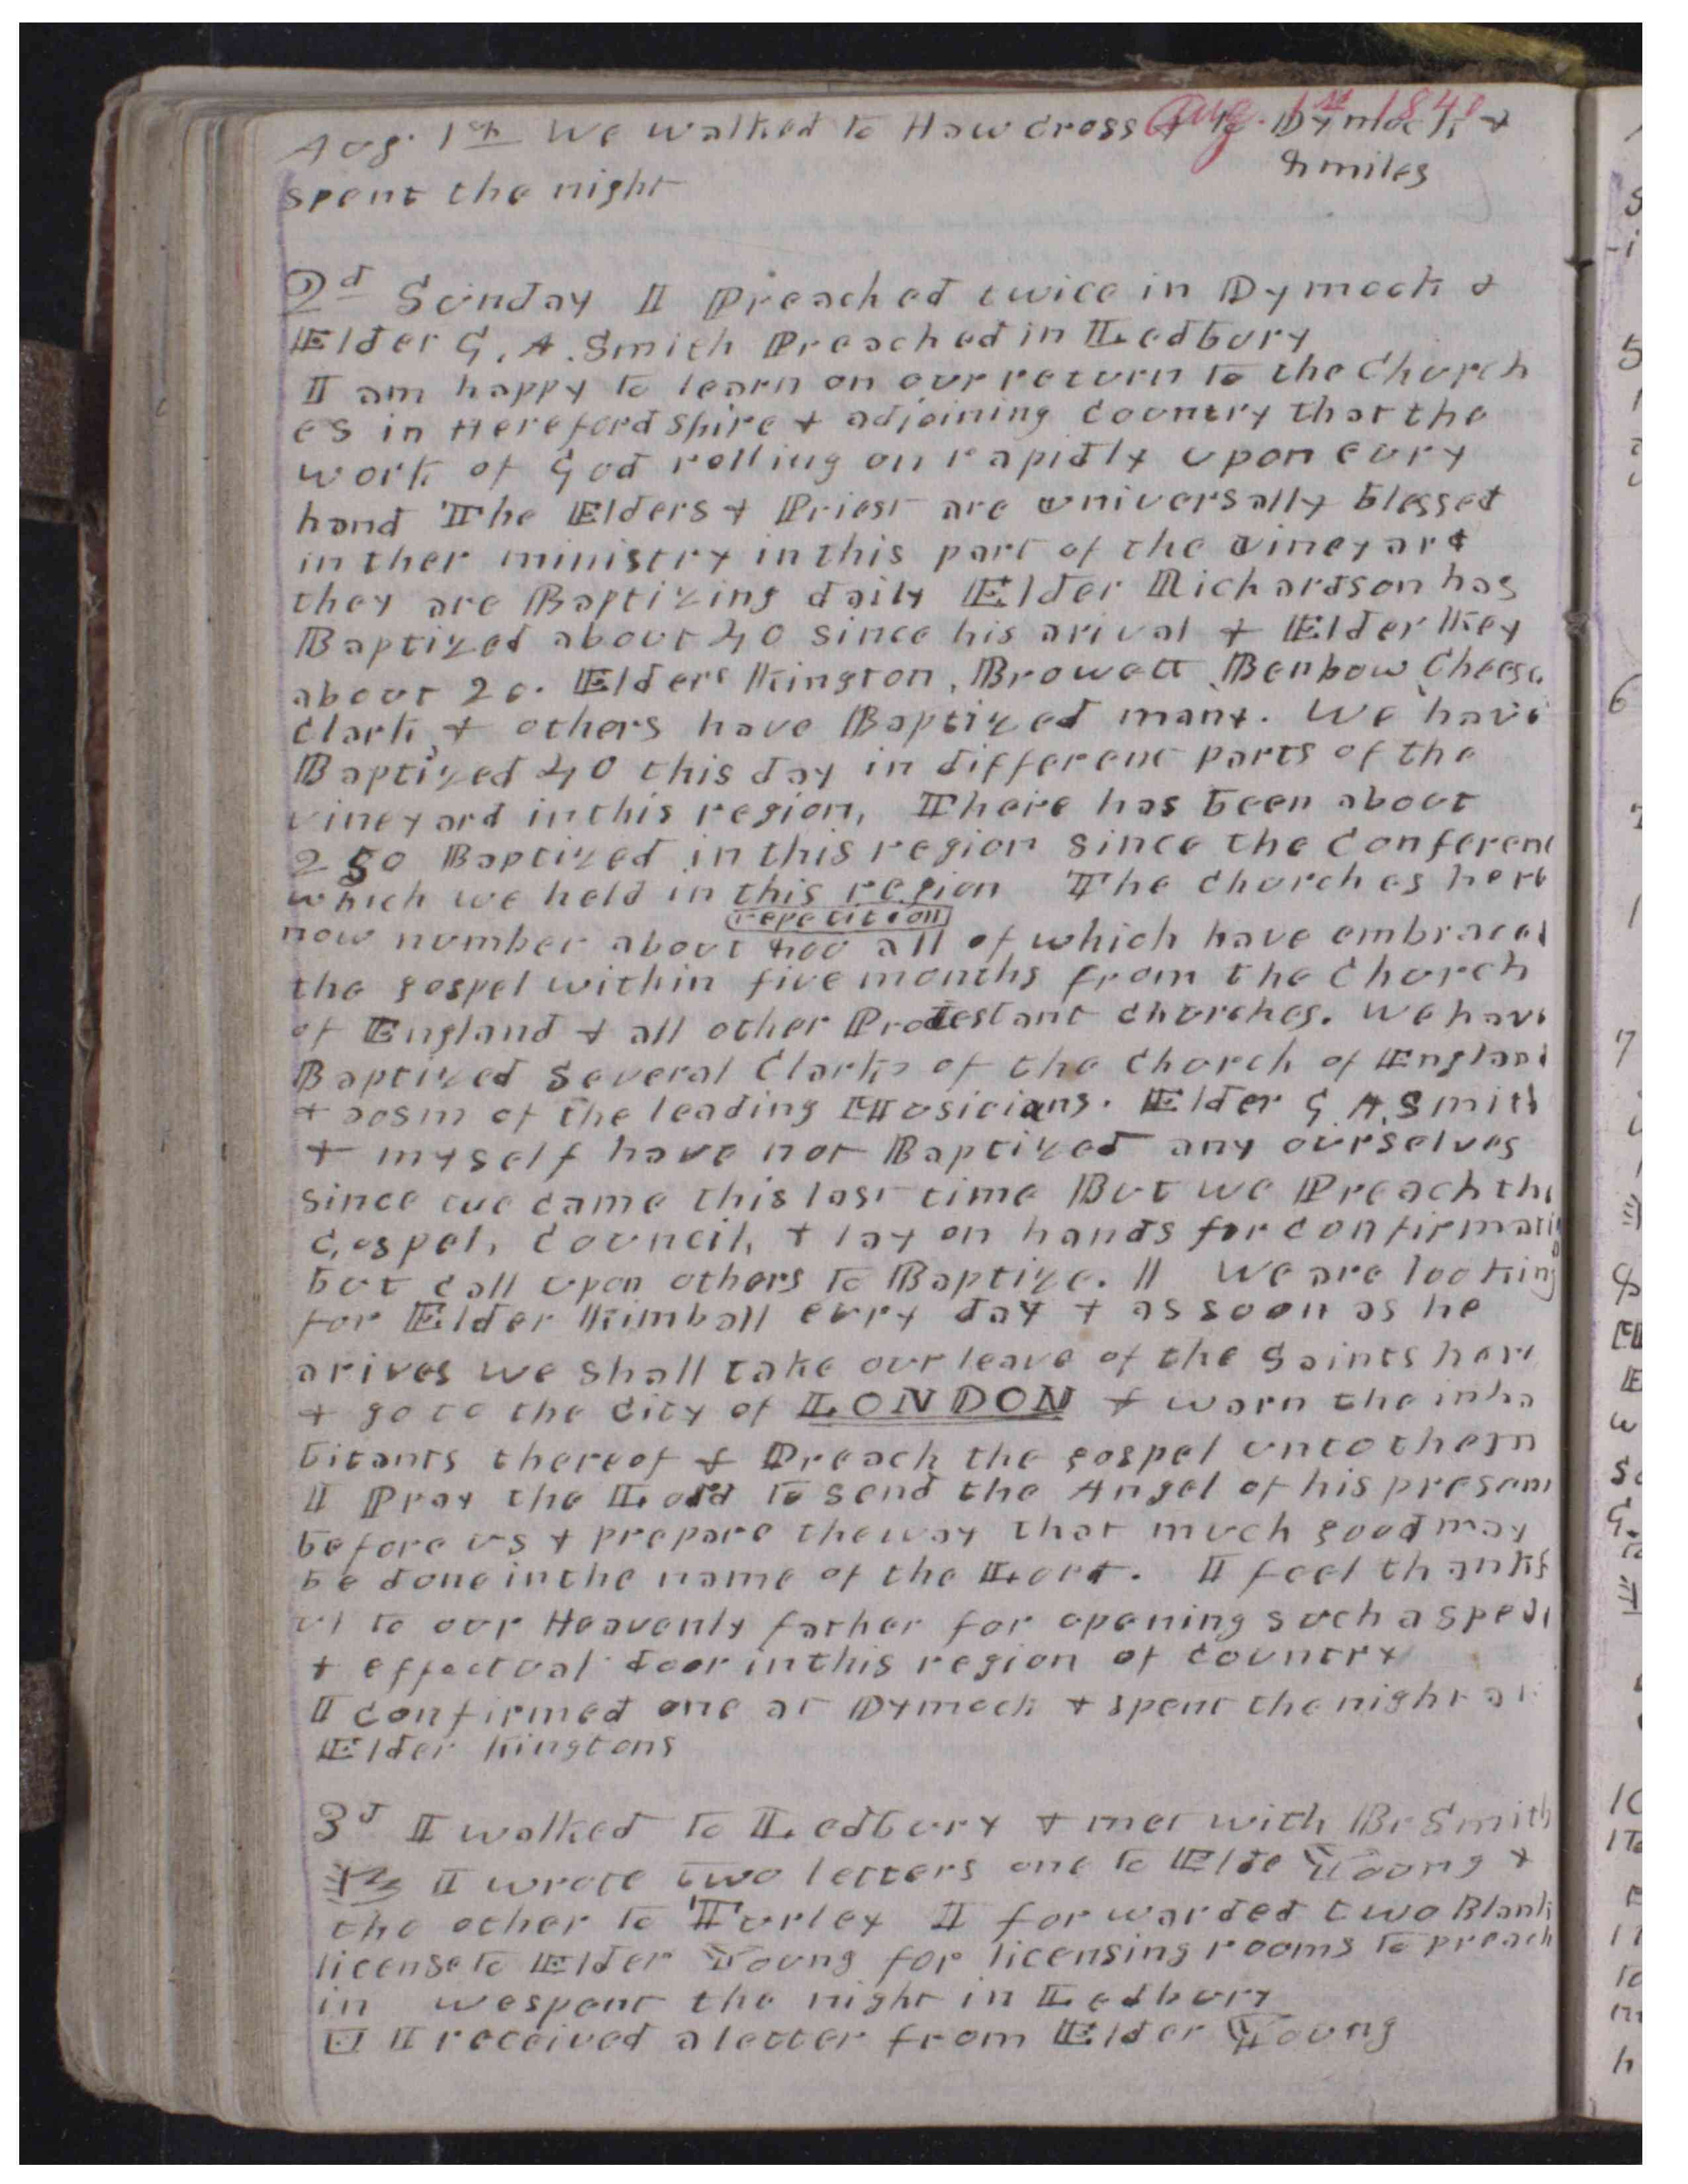 Aug. 1st 1840
Aug. 1st We walked to Haw cross & to Dymock &
spent the night 8 miles
2d Sunday I Preached twice in Dymock &
Elder G. A. Smith Preached in Ledbury
I am happy to learn on our return to the Church
es in Herefordshire & adjoining Country that the
work of God rolling on rapidly upon evry
hand The Elders & Priest are universally blessed
in ther ministry in this part of the vineyard
they are Baptizing daily Elder Richardson has
Baptized about 40 since his arival & Elder Key
about 20. Elders Kington, Browett, Benbow, Cheese
Clark, & others have Baptized many. We have
Baptized 40 this day in different parts of the
vineyard in this region, There has been about
250 Baptized in this region since the Conferenc
which we held in this region The Churches here
repetition
now number about 800 all of which have embraced
the gospel within five months from the Church
of England & all other Protestant Churches. We have
Baptized Several Clarks of the Church of England
& of the leading Musicians. Elder G. A. Smith
& myself have not Baptized any ourselves
since we came this last time But we Preach the
Gospel, Council, & lay on hands for confirmati
but call upon others to Baptize. || We are looking
for Elder Kimball evry day & as soon as he
arives we shall take our leave of the Saints here
& go to the City of LONDON & warn the inha
bitants thereof & Preach the gospel unto them
I Pray the Lord to send the Angel of his presenc
before us & prepare the way that much good may
be done in the name of the Lord. I feel thankf
ul to our Heavenly father for opening such a spedi
& effectual door in this region of country
I confirmed one at Dymock & spent the night at
Elder Kingtons
3d I walked to Ledbury & met with Br Smith
I wrote two letters one to Elde Young &
the other to Turley I forwarded two Blank
license to Elder Young for licensing rooms to preach
in we spent the night in Ledbury
I received a letter from Elder Young